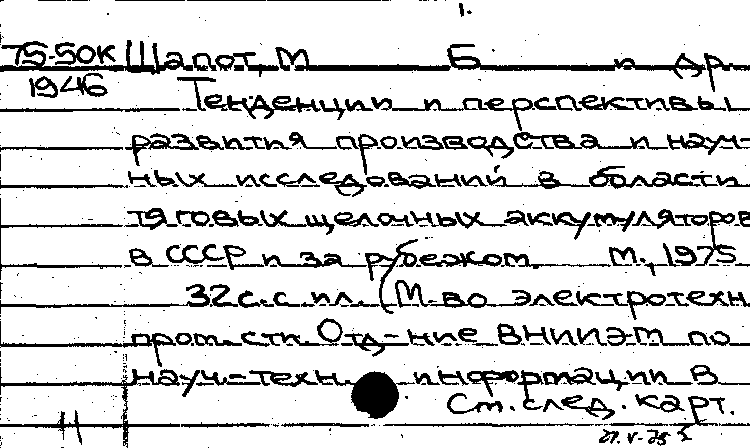 1.
75-50К Шапот, М Б и др.
1946
Тенденции и перспективы
развития производства и науч-
ных исследований в области
тяговых щелочных аккумуляторов
в СССР и за рубежом. М., 1975
32с.с ил. (М-во электротехн
пром-сти. Отд-ние ВНИИЭМ по
науч.-техн. информации в
См. след. карт.